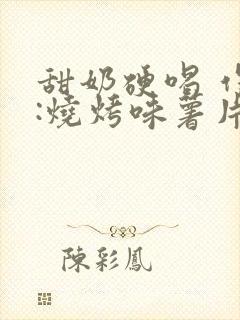 甜奶硬唱
:燒烤味薯片
陳彩鳳